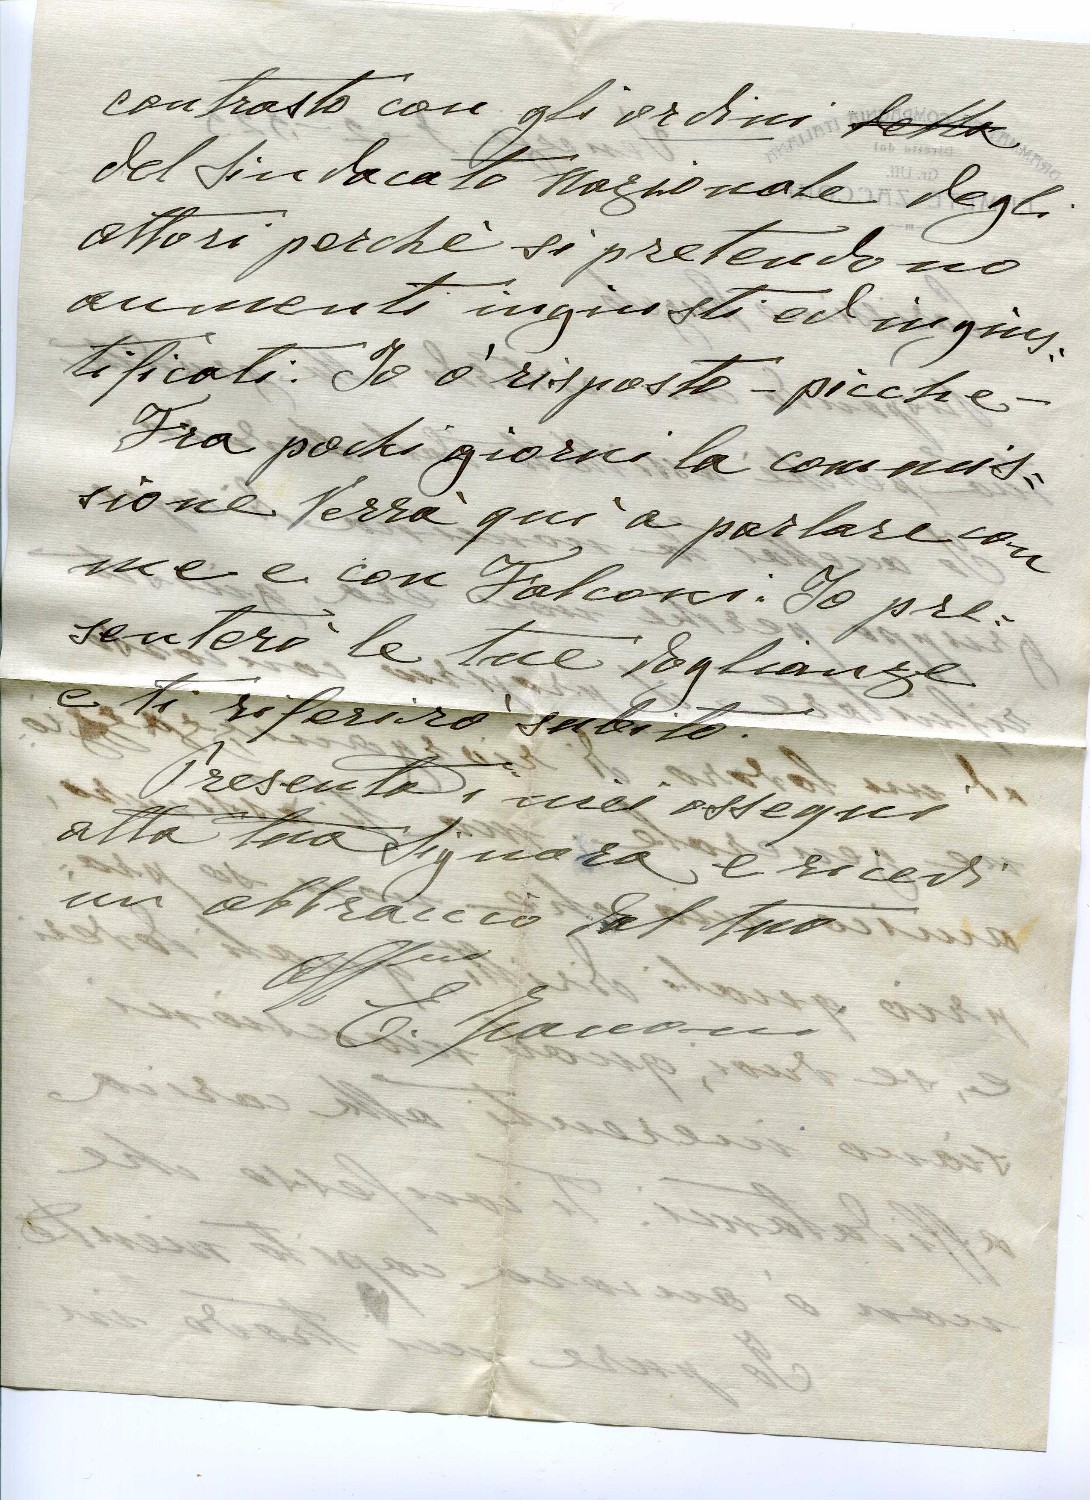 contrasto con gli ordini della
del Sindacato Nazionale degli
attori perchè si pretendono
aumenti ingiusti ed ingius:
tificati. Io ò risposto - picche -
Fra pochi giorni la commis:
sione verrà quì a parlare con
me e con Falconi. Io pre:
senterò le tue doglianze
e ti riferirò subito.
Presenta i miei ossequi
alla tua Signora e ricevi
un abbraccio dal tuo
aff.mo
E.